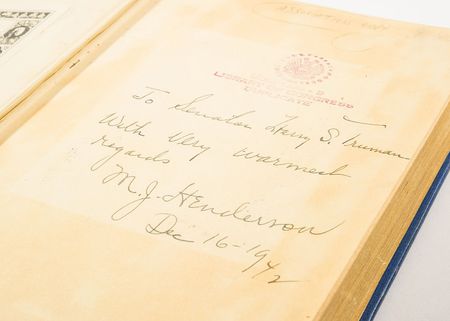 LIBRARY OF CONGRESS
DUPLICATE
To Senator Harry S. Truman
With very warmest
regards
M. J. Henderson
Dec 16-1942